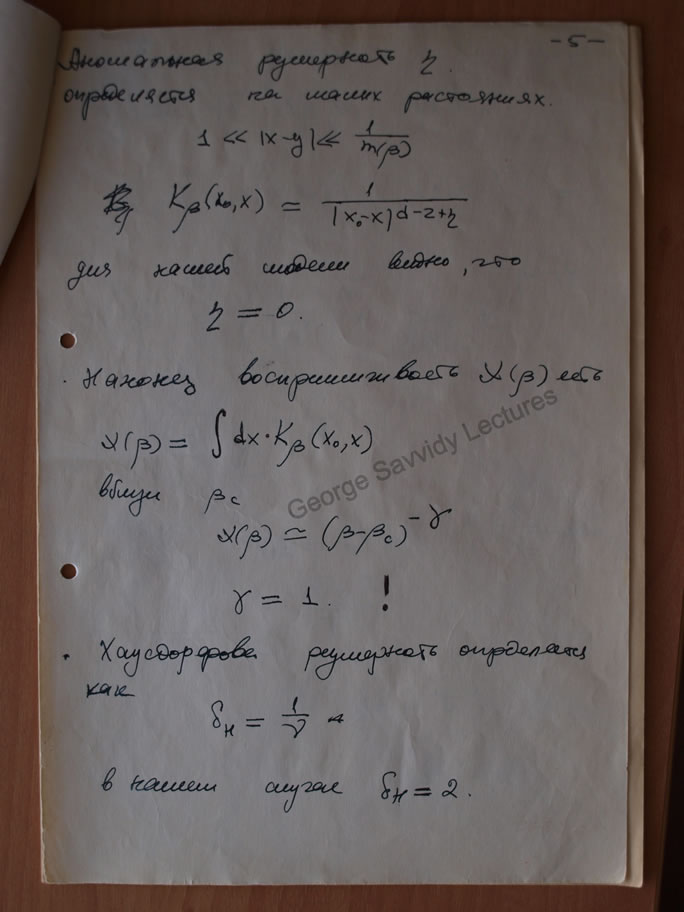 - 5 -
Аномальная размерность η.
определяется на малых растояниях.
1 << |x-y| << 1/m(β)
K_β(x₀,x) ≃ 1/|x₀-x|^{d-2+η}
для нашей модели видно, что
η = 0.
· Наконец восприимчивость χ(β) есть
χ(β) = ∫ dx · K_β(x₀,x)
вблизи β_c
χ(β) ≃ (β-β_c)^{-γ}
γ = 1. !
· Хаусдорфова размерность определяется
как
δ_H = 1/ν
в нашем случае δ_H = 2.
George Savvidy Lectures